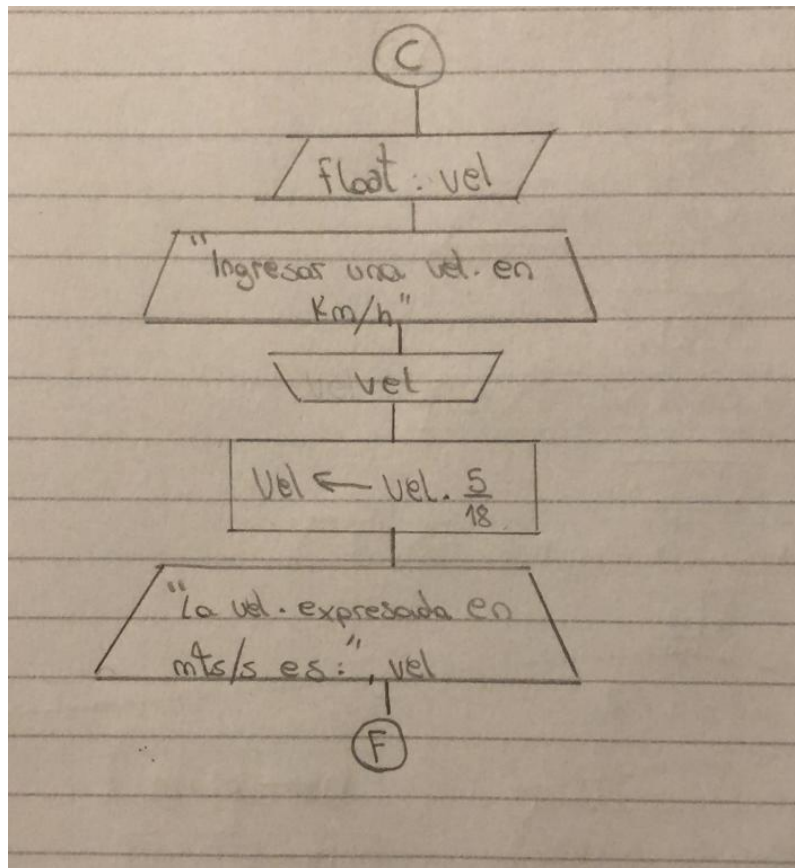 C
float : vel
"Ingresar una vel. en
Km/h"
vel
Vel ← vel. 5/18
"La vel. expresada en
mts/s es:", vel
F